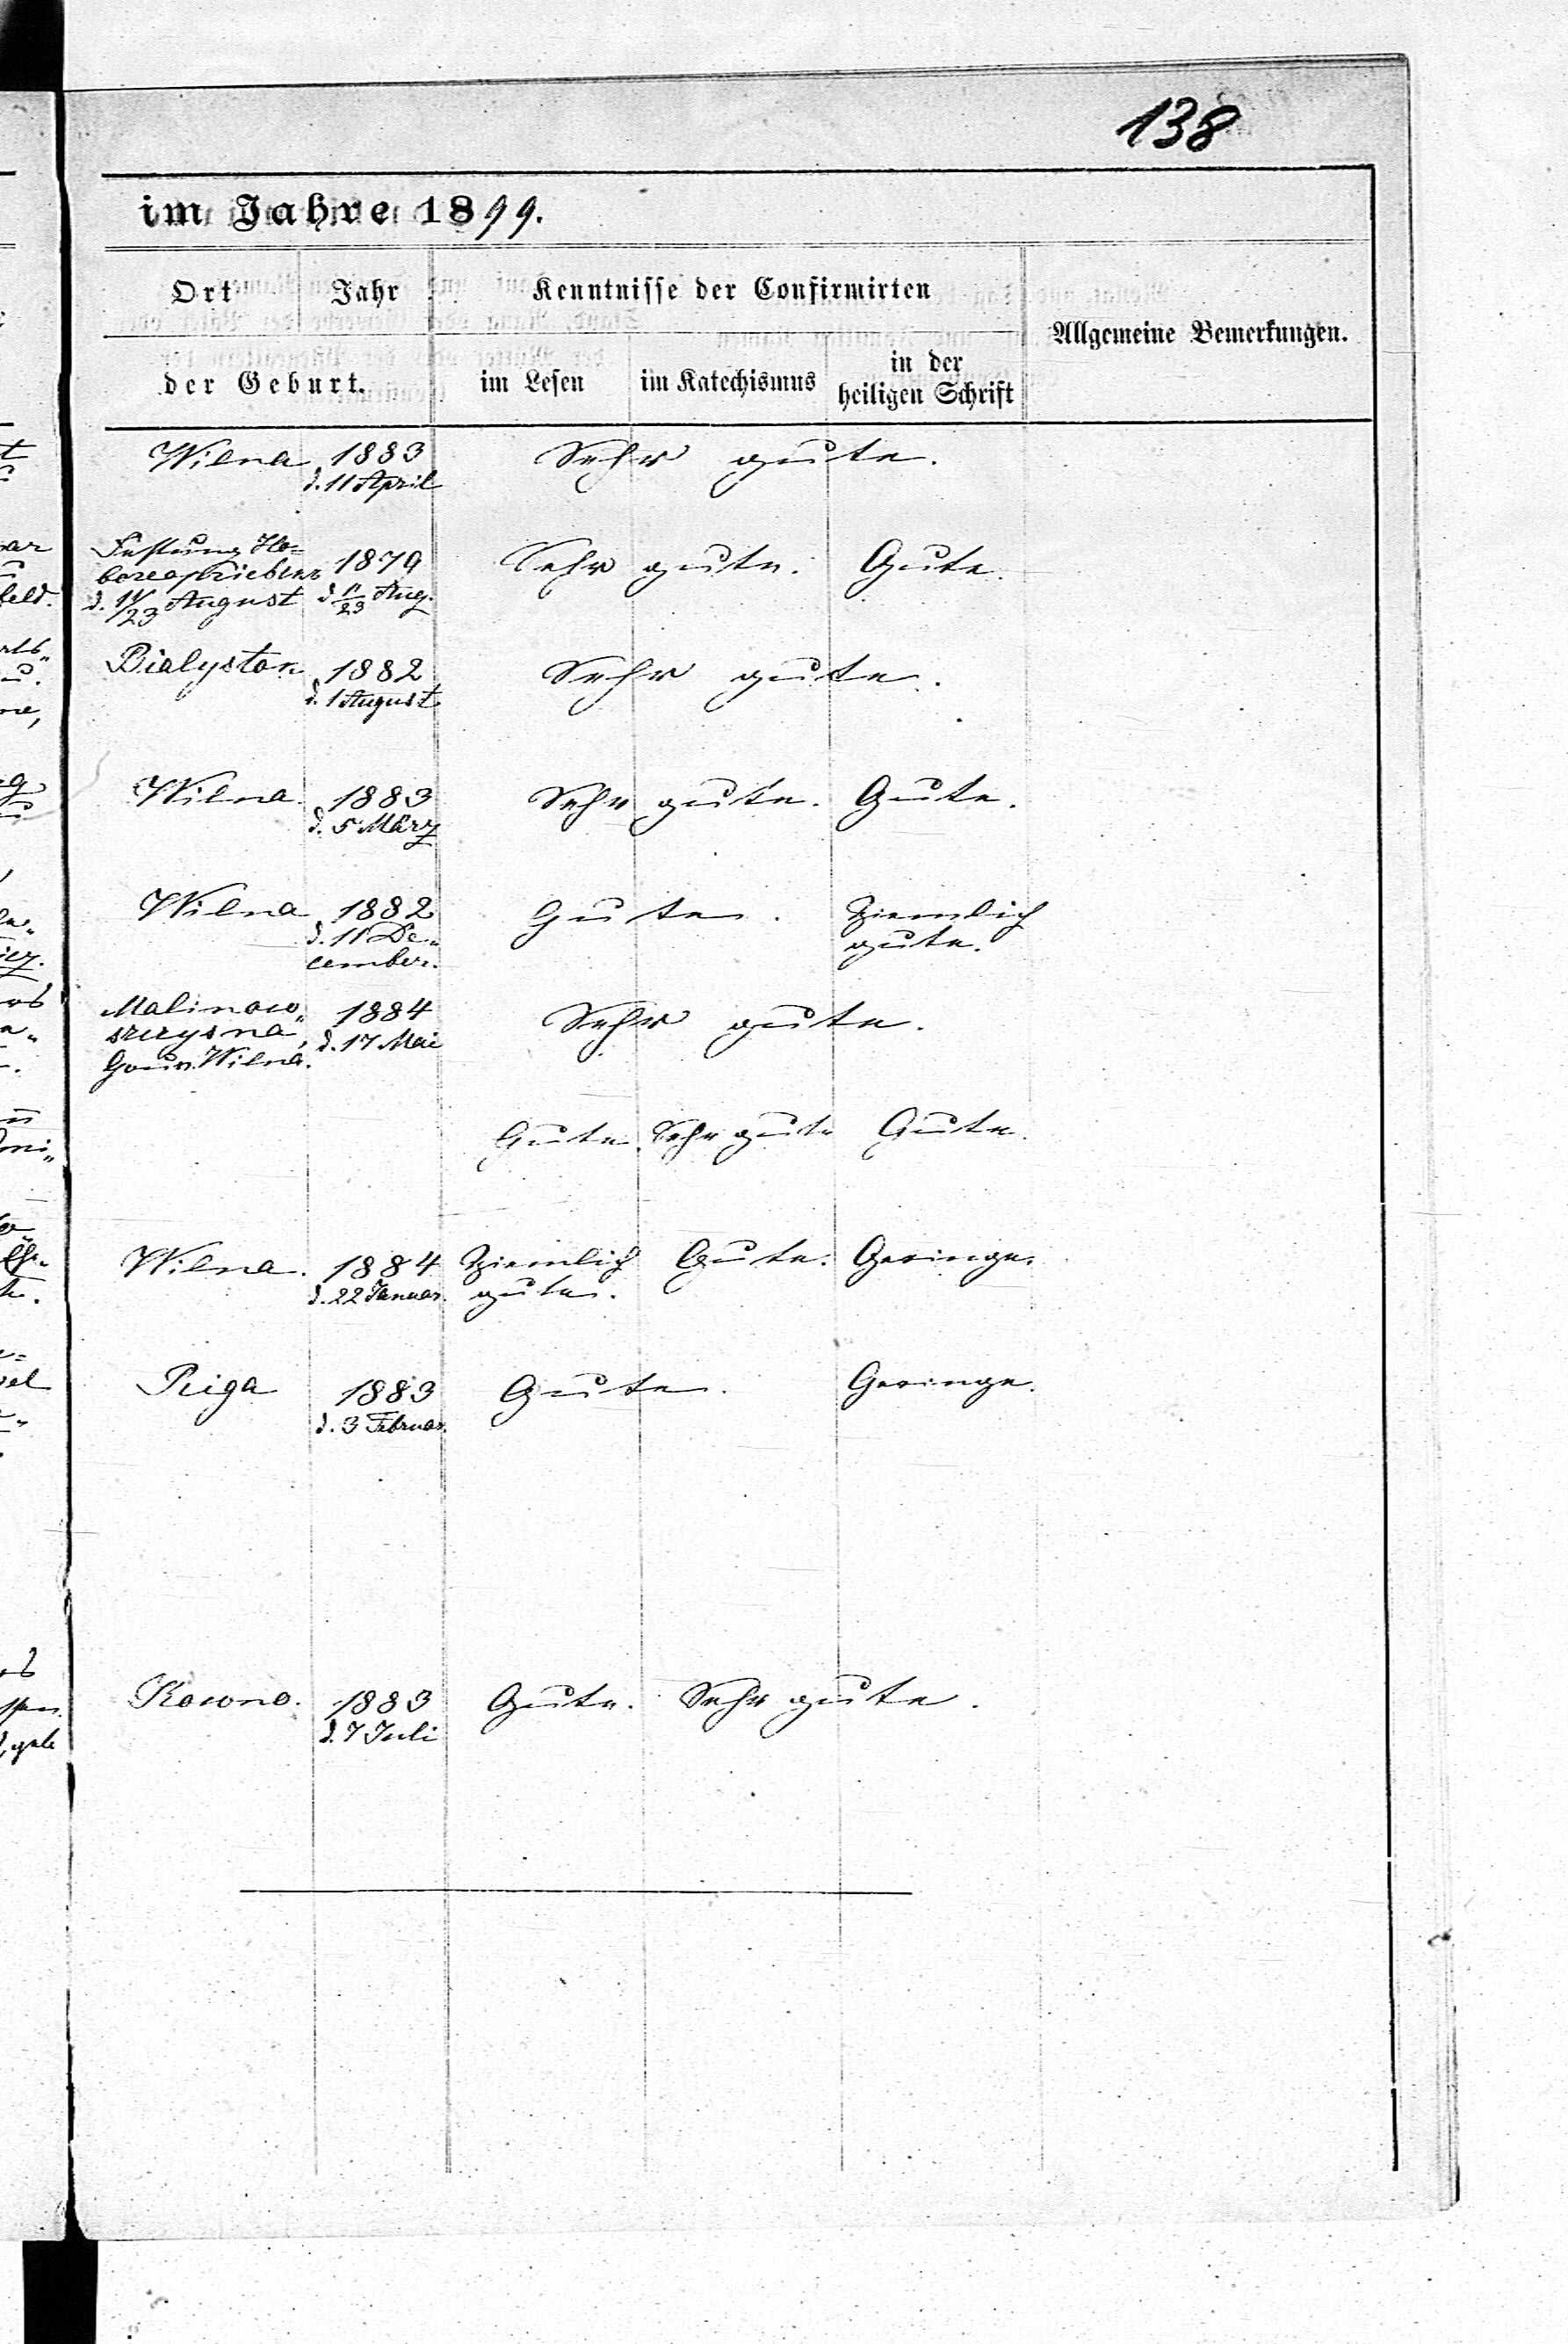 138
im Jahre 1899.
Ort Jahr Kenntnisse der Confirmirten
Allgemeine Bemerkungen.
der Geburt. im Lesen im Katechismus in der heiligen Schrift
Wilna 1883 Sehr gute.
d. 11 April
Festung
1879 Sehr gute. Gute.
d. 11/23 August d 11/23 Aug.
Bialystok 1882 Sehr gute.
d. 1 August
Wilna. 1883 Sehr gute. Gute.
d. 5 März
Wilna 1882 Gute. Ziemlich
d. 11 De- gute.
cember.
Malinow- 1884 Sehr gute.
d. 17 Mai
Gouv. Wilna.
Gute. Sehr gute Gute.
Wilna. 1884 Ziemlich Gute. Geringe.
d. 22 Januar. gute.
Riga 1883 Gute. Geringe.
d. 3 Februar.
Kowno. 1883 Gute. Sehr gute.
d. 7 Juli